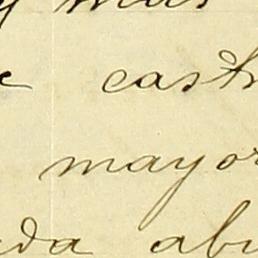 y mas
e cast
mayor
da abu